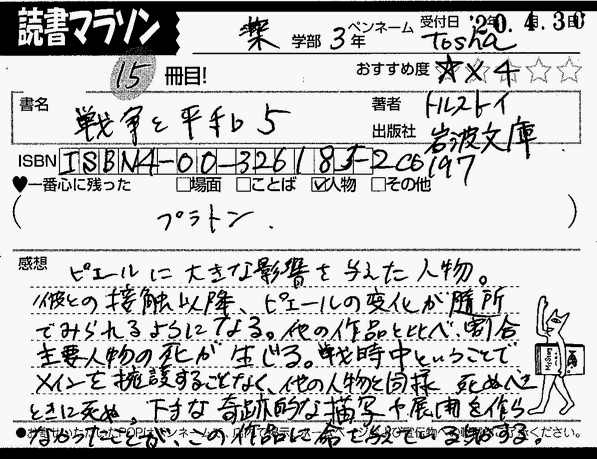 読書マラソン
薬 学部 3年
ペンネーム tosha
受付日 '20.4.30
15 冊目!
おすすめ度 ★×4 ☆☆☆
書名 戦争と平和 5
著者 トルストイ
出版社 岩波文庫
ISBN ISBN4-00-326185-2 C0197
♥一番心に残った □場面 □ことば ☑人物 □その他
( プラトン. )
感想
ピエールに大きな影響を与えた人物。
彼との接触以降、ピエールの変化が随所
でみられるようになる。他の作品と比べ、割合
主要人物の死が生じる。戦時中ということで
メインを擁護することなく、他の人物と同様 死ぬべき
ときに死ぬ。下手な奇跡的な描写や展開を作ら
なかったことが、この作品に命を与えている気がする。